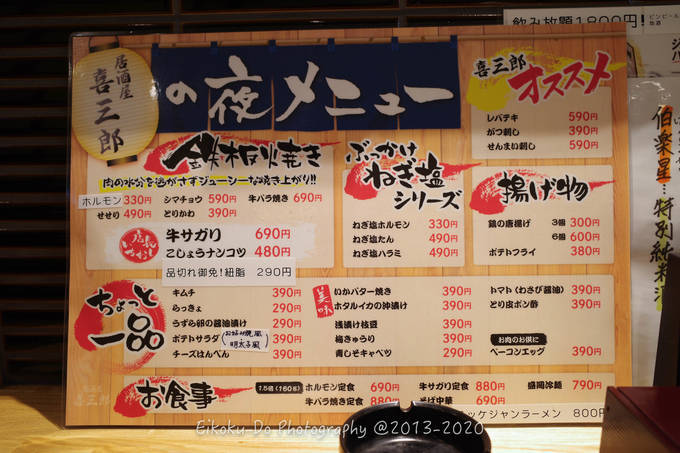 飲み放題1800円!
居酒屋
喜三郎
の夜メニュー
喜三郎
オススメ
レバテキ 590円
がつ刺し 390円
せんまい刺し 590円
鉄板焼き
肉の水分を逃がさずジューシーな焼き上がり!!
ホルモン 330円 シマチョウ 590円 牛バラ焼き 690円
せせり 490円 とりかわ 390円
牛サガリ 690円
こしょうナンコツ 480円
品切れ御免!紐脂 290円
ぶっかけ
ねぎ塩
シリーズ
ねぎ塩ホルモン 330円
ねぎ塩たん 490円
ねぎ塩ハラミ 490円
揚げ物
鶏の唐揚げ 3個 300円
6個 600円
ポテトフライ 380円
ちょっと
一品
キムチ 390円
らっきょ 290円
うずら卵の醤油漬け 290円
ポテトサラダ (お好み焼風 明太子風) 390円
チーズはんぺん 390円
美味
いかバター焼き 390円
ホタルイカの沖漬け 390円
浅漬け枝豆 390円
梅きゅうり 390円
青しそキャベツ 290円
トマト(わさび醤油) 390円
とり皮ポン酢 390円
お肉のお供に
ベーコンエッグ 390円
お食事
ホルモン定食 690円 牛サガリ定食 880円 盛岡冷麺 790円
牛バラ焼き定食 880円 そば中華 690円
ッケジャンラーメン 800円
伯楽星…特別純米酒
喜三郎
Eikoku-Do Photography @2013-2020